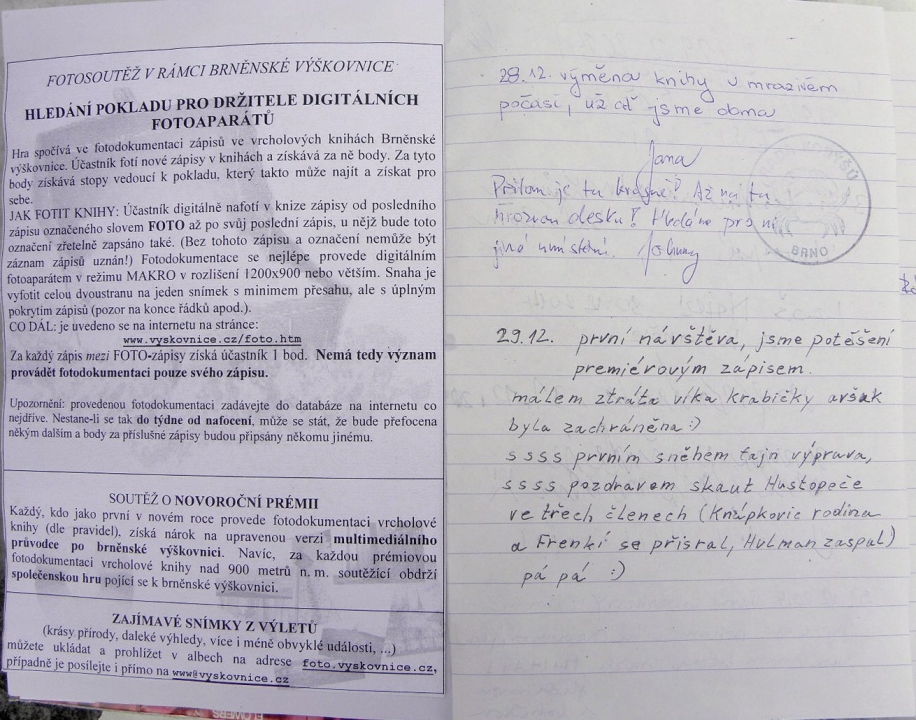 FOTOSOUTĚŽ V RÁMCI BRNĚNSKÉ VÝŠKOVNICE
HLEDÁNÍ POKLADU PRO DRŽITELE DIGITÁLNÍCH
FOTOAPARÁTŮ
Hra spočívá ve fotodokumentaci zápisů ve vrcholových knihách Brněnské
výškovnice. Účastník fotí nové zápisy v knihách a získává za ně body. Za tyto
body získává stopy vedoucí k pokladu, který takto může najít a získat pro
sebe.
JAK FOTIT KNIHY: Účastník digitálně nafotí v knize zápisy od posledního
zápisu označeného slovem FOTO až po svůj poslední zápis, u nějž bude toto
označení zřetelně zapsáno také. (Bez tohoto zápisu a označení nemůže být
záznam zápisů uznán!) Fotodokumentace se nejlépe provede digitálním
fotoaparátem v režimu MAKRO v rozlišení 1200x900 nebo větším. Snaha je
vyfotit celou dvoustranu na jeden snímek s minimem přesahu, ale s úplným
pokrytím zápisů (pozor na konce řádků apod.).
CO DÁL: je uvedeno se na internetu na stránce:
www.vyskovnice.cz/foto.htm
Za každý zápis mezi FOTO-zápisy získá účastník 1 bod. Nemá tedy význam
provádět fotodokumentaci pouze svého zápisu.
Upozornění: provedenou fotodokumentaci zadávejte do databáze na internetu co
nejdříve. Nestane-li se tak do týdne od nafocení, může se stát, že bude přefocena
někým dalším a body za příslušné zápisy budou připsány někomu jinému.
SOUTĚŽ O NOVOROČNÍ PRÉMII
Každý, kdo jako první v novém roce provede fotodokumentaci vrcholové
knihy (dle pravidel), získá nárok na upravenou verzi multimediálního
průvodce po brněnské výškovnici. Navíc, za každou prémiovou
fotodokumentaci vrcholové knihy nad 900 metrů n. m. soutěžící obdrží
společenskou hru pojící se k brněnské výškovnici.
ZAJÍMAVÉ SNÍMKY Z VÝLETŮ
(krásy přírody, daleké výhledy, více i méně obvyklé události, ...)
můžete ukládat a prohlížet v albech na adrese foto.vyskovnice.cz,
případně je posílejte i přímo na www@vyskovnice.cz
28.12. výměna knihy v mrazivém
počasí, už ať jsme doma
Jana
Přitom je tu krásně! Až na tu
hroznou desku! Hledáme pro ni
jiné umístění. Johnny
BRNO
29.12. první návštěva, jsme potěšeni
premiérovým zápisem.
málem ztráta víka krabičky avšak
byla zachráněna :)
s s s s prvním sněhem fajn výprava,
s s s s pozdravem skaut Hustopeče
ve třech členech (Knápkovic rodina
a Frenkí se přisral, Hulman zaspal)
pá pá :)